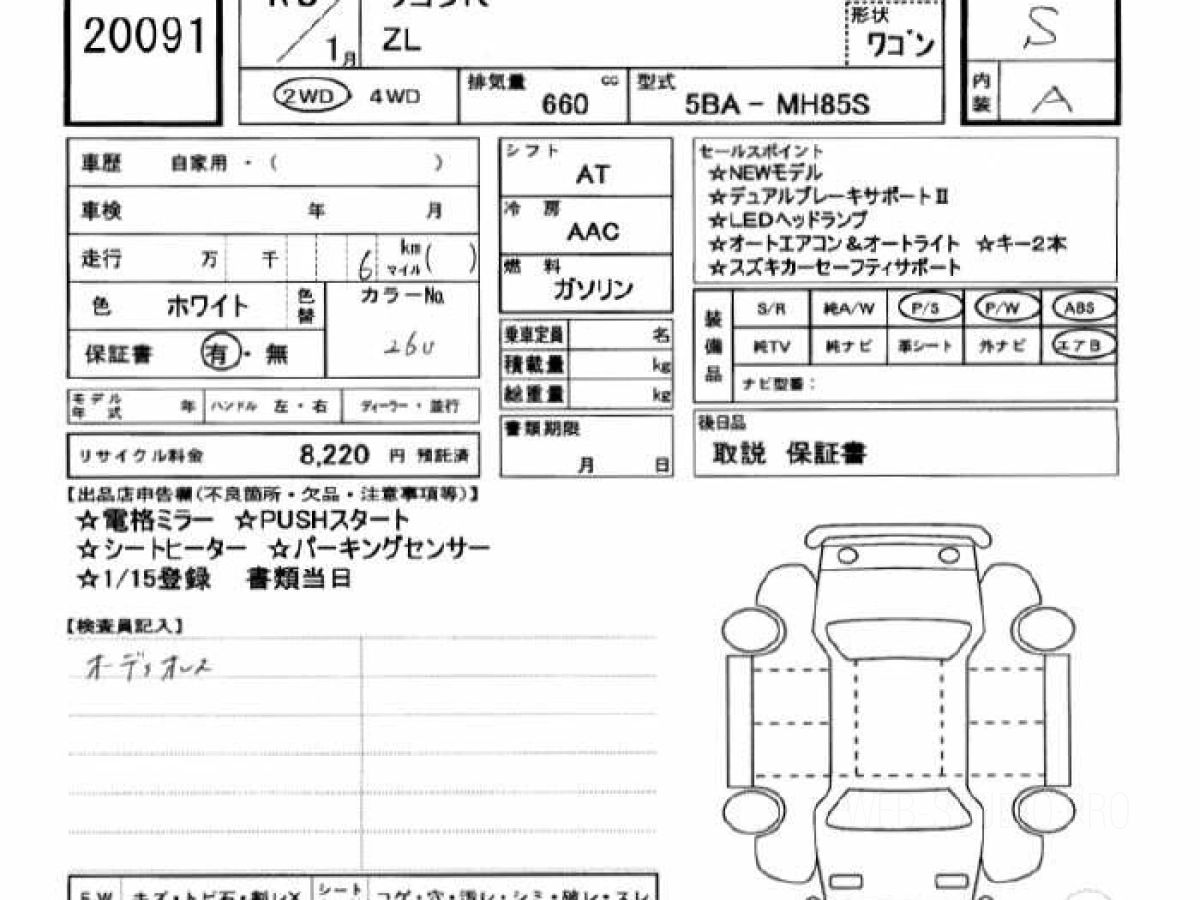 20091
1月
ZL
形状
ワゴン
S
2WD・4WD
排気量 cc
660
型式
5BA - MH85S
内装
A
車歴 自家用・( )
車検 年 月
走行 万 千 6 km マイル ( )
色 ホワイト 色替
カラーNo.
26U
保証書 有・無
モデル年式 年 ハンドル 左・右 ディーラー・並行
リサイクル料金 8,220 円 預託済
シフト
AT
冷房
AAC
燃料
ガソリン
乗車定員 名
積載量 kg
総重量 kg
書類期限
月 日
セールスポイント
☆NEWモデル
☆デュアルブレーキサポートⅡ
☆LEDヘッドランプ
☆オートエアコン&オートライト ☆キー2本
☆スズキカーセーフティサポート
装備品
S/R 純A/W P/S P/W ABS
純TV 純ナビ 革シート 外ナビ エアB
ナビ型番:
後日品
取説 保証書
【出品店申告欄(不良箇所・欠品・注意事項等)】
☆電格ミラー ☆PUSHスタート
☆シートヒーター ☆パーキングセンサー
☆1/15登録 書類当日
【検査員記入】
オーディオレス
シート
コゲ・穴・汚レ・シミ・破レ・スレ